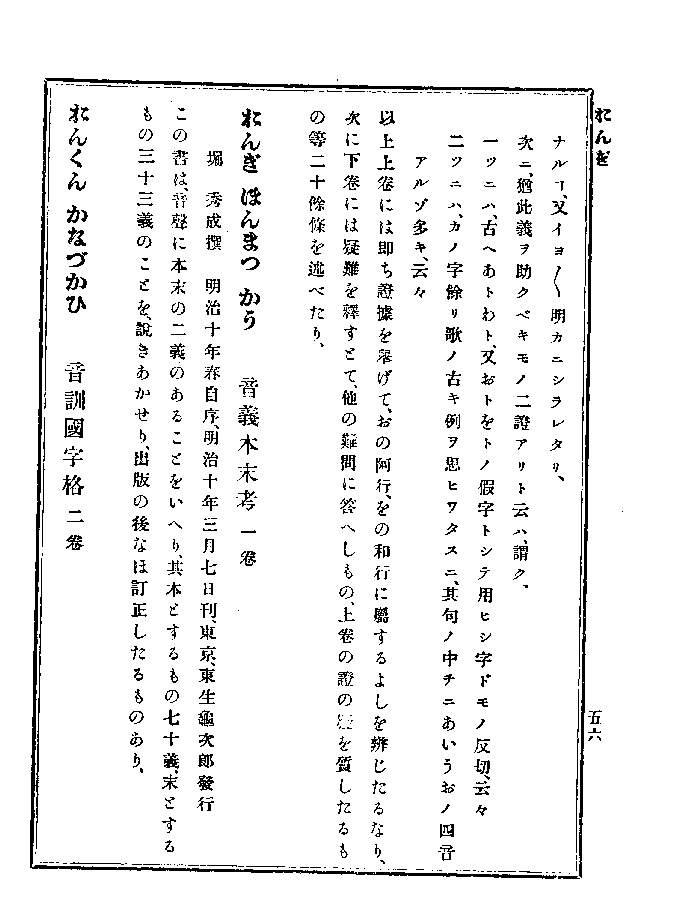 おんぎ
五六
ナルヿ、又イヨ〳〵明カニシラレタリ、
次ニ、猶此義ヲ助クベキモノ二證アリト云ハ、謂ク、
一ツニハ、古ヘあトわト、又おトをトノ假字トシテ用ヒシ字ドモノ反切、云々
二ツニハ、カノ字餘リ歌ノ古キ例ヲ思ヒワタスニ、其句ノ中チニあいうおノ四音
アルゾ多キ、云々
以上上卷には即ち證據を擧げて、おの阿行、をの和行に屬するよしを辨じたるなり、
次に下卷には疑難を釋すとて、他の難問に答へしもの、上卷の證の疑を質したるも
の等二十餘條を述べたり、
おんぎ ほんまつ かう 音義本末考 一卷
堀 秀成撰 明治十年春自序、明治十年三月七日刊、東京、東生龜次郎發行
この書は、音聲に本末の二義のあることをいへり、其本とするもの七十義、末とする
もの三十三義のことを、説きあかせり、出版の後なほ訂正したるものあり、
おんくん かなづかひ 音訓國字格 二卷